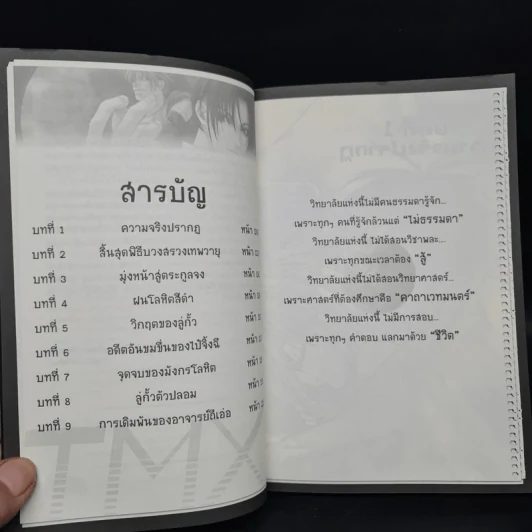 สารบัญ
บทที่ 1 ความจริงปรากฏ หน้า
บทที่ 2 สิ้นสุดพิธีบวงสรวงเทพวายุ หน้า
บทที่ 3 มุ่งหน้าสู่ตระกูลจง หน้า
บทที่ 4 ฝนโลหิตสีดำ หน้า
บทที่ 5 วิกฤตของลู่กั้ว หน้า
บทที่ 6 อดีตอันขมขื่นของไป๋จิ้งฉี หน้า
บทที่ 7 จุดจบของมังกรโลหิต หน้า
บทที่ 8 ลู่กั้วตัวปลอม หน้า
บทที่ 9 การเดิมพันของอาจารย์ถีเอ่อ หน้า
TMX
วิทยาลัยแห่งนี้ไม่มีคนธรรมดารู้จัก...
เพราะทุกๆ คนที่รู้จักล้วนแต่ "ไม่ธรรมดา"
วิทยาลัยแห่งนี้ ไม่ได้สอนวิชาพละ...
เพราะทุกขณะเวลาต้อง "สู้"
วิทยาลัยแห่งนี้ไม่ได้สอนวิทยาศาสตร์...
เพราะศาสตร์ที่ต้องศึกษาคือ "คาถาเวทมนตร์"
วิทยาลัยแห่งนี้ ไม่มีการสอบ...
เพราะทุกๆ คำตอบ แลกมาด้วย "ชีวิต"